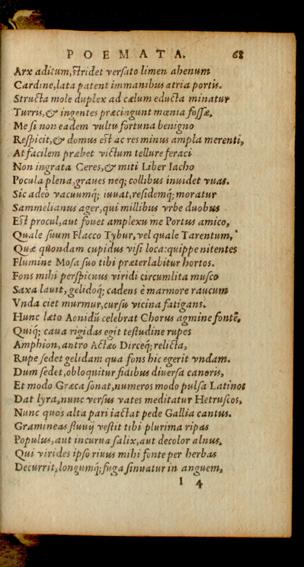 POEMATA. 68
Arx aditum, stridet versato limen ahenum
Cardine, lata patent immanibus atria portis.
Structa mole duplex ad cælum educta minatur
Turris, & ingentes præcingunt mœnia fossæ,
Me si non eadem vultu fortuna benigno
Respicit, & domus est ac res minus ampla merenti,
At facilem præbet victum tellure feraci
Non ingrata Ceres, & miti Liber Iacho
Pocula plena, graues neq; collibus inuidet vuas.
Sic adeò vacuumq; iuuat, residemq; moratur
Sammelianus ager, qui millibus vrbe duobus
Est procul, aut fouet amplexu me Portus amico,
Quale suum Flacco Tybur, vel quale Tarentum,
Quæ quondam cupidus visi loca: quippe nitentes
Flumine Mosa suo tibi præterlabitur hortos.
Fons mihi perspicuus viridi circumlita musco
Saxa lauit, gelidoq; cadens è marmore raucum
Vnda ciet murmur, cursu vicina fatigans.
Hunc læto Aonidū celebrat Chorus agmine fontē,
Quiq; caua rigidas egit testudine rupes
Amphion, antro Actæo Dirceq; relicta,
Rupe sedet gelidam qua fons hic egerit vndam.
Dum sedet, obloquitur fidibus diuersa canoris,
Et modo Græca sonat, numeros modo pulsa Latinos
Dat lyra, nunc versus vates meditatur Hetruscos,
Nunc quos alta pari iactat pede Gallia cantus.
Gramineas fluuij vestit tibi plurima ripas
Populus, aut incurua salix, aut decolor alnus.
Qui virides ipso riuus mihi fonte per herbas
Decurrit, longumq; fuga sinuatur in anguem,
I 4